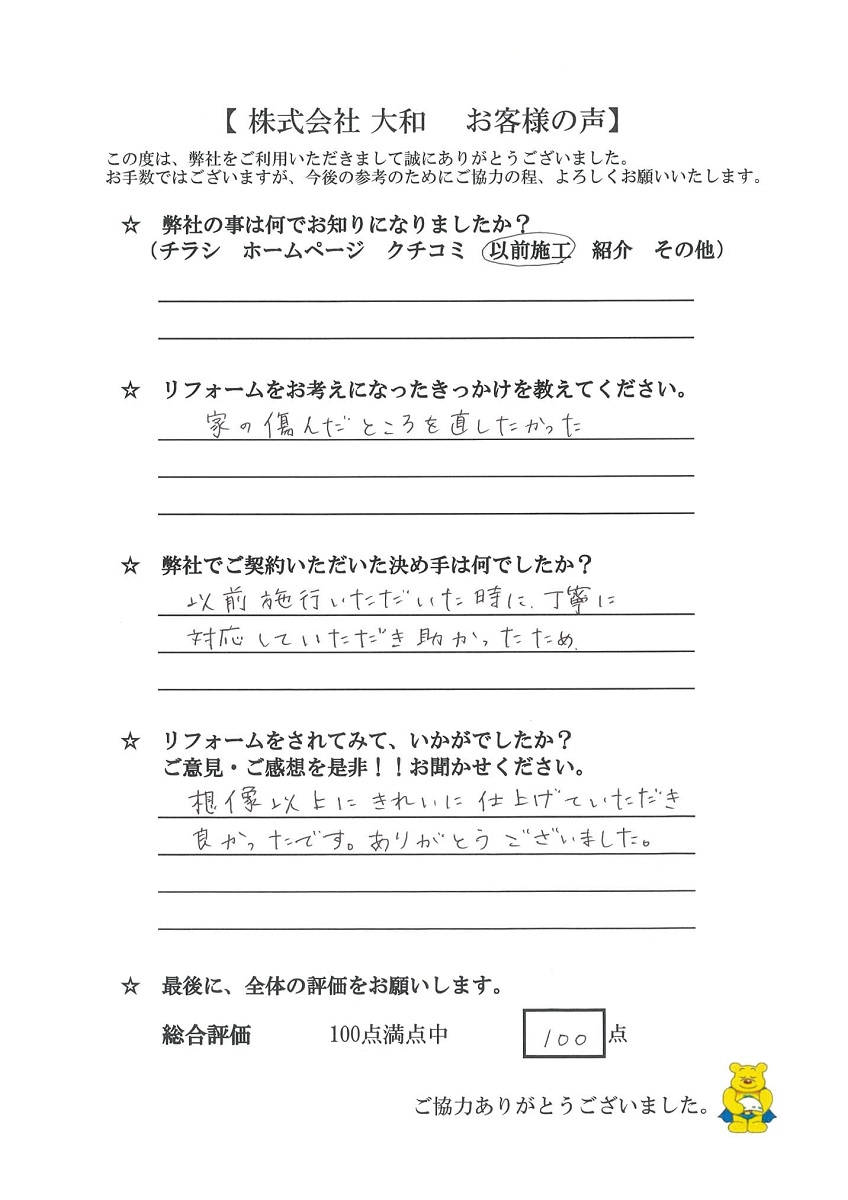 【 株式会社 大和　お客様の声】
この度は、弊社をご利用いただきまして誠にありがとうございました。
お手数ではございますが、今後の参考のためにご協力の程、よろしくお願いいたします。
☆　弊社の事は何でお知りになりましたか？
（チラシ　ホームページ　クチコミ　以前施工　紹介　その他）
☆　リフォームをお考えになったきっかけを教えてください。
家の傷んだところを直したかった
☆　弊社でご契約いただいた決め手は何でしたか？
以前施行いただいた時に、丁寧に
対応していただき助かったため。
☆　リフォームをされてみて、いかがでしたか？
ご意見・ご感想を是非！！お聞かせください。
想像以上にきれいに仕上げていただき
良かったです。ありがとうございました。
☆　最後に、全体の評価をお願いします。
総合評価　100点満点中　100点
ご協力ありがとうございました。